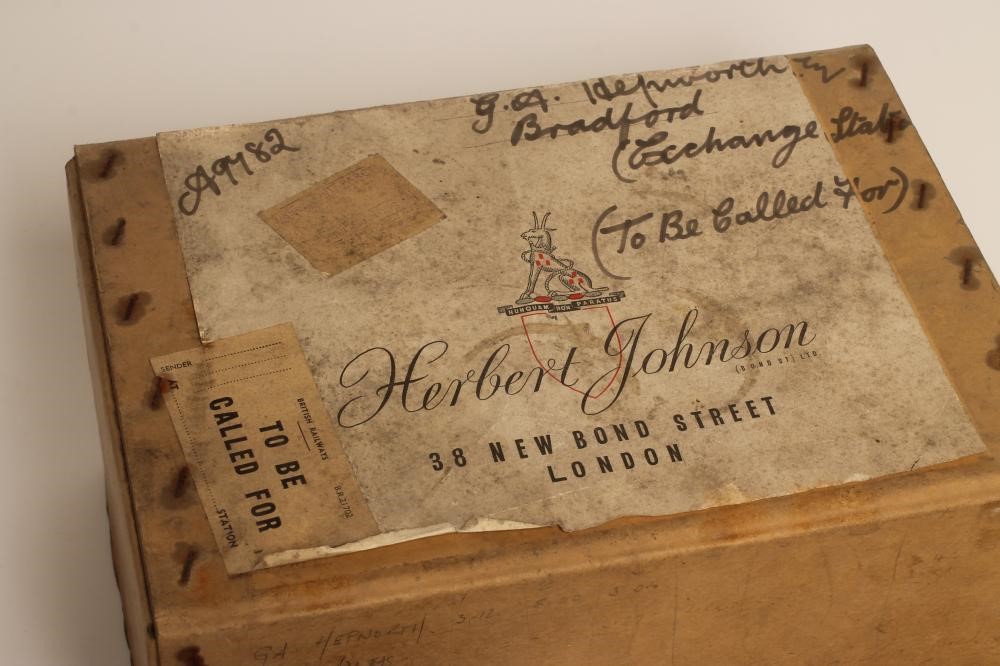 G.A. Hepworth Esq
Bradford
(Exchange Station
(To Be Called For)
A9782
NUNQUAM NON PARATUS
Herbert Johnson
(BOND ST) LTD.
38 NEW BOND STREET
LONDON
SENDER
AT
BRITISH RAILWAYS
B.R.21702
TO BE
CALLED FOR
STATION
GA HEPWORTH 3-12